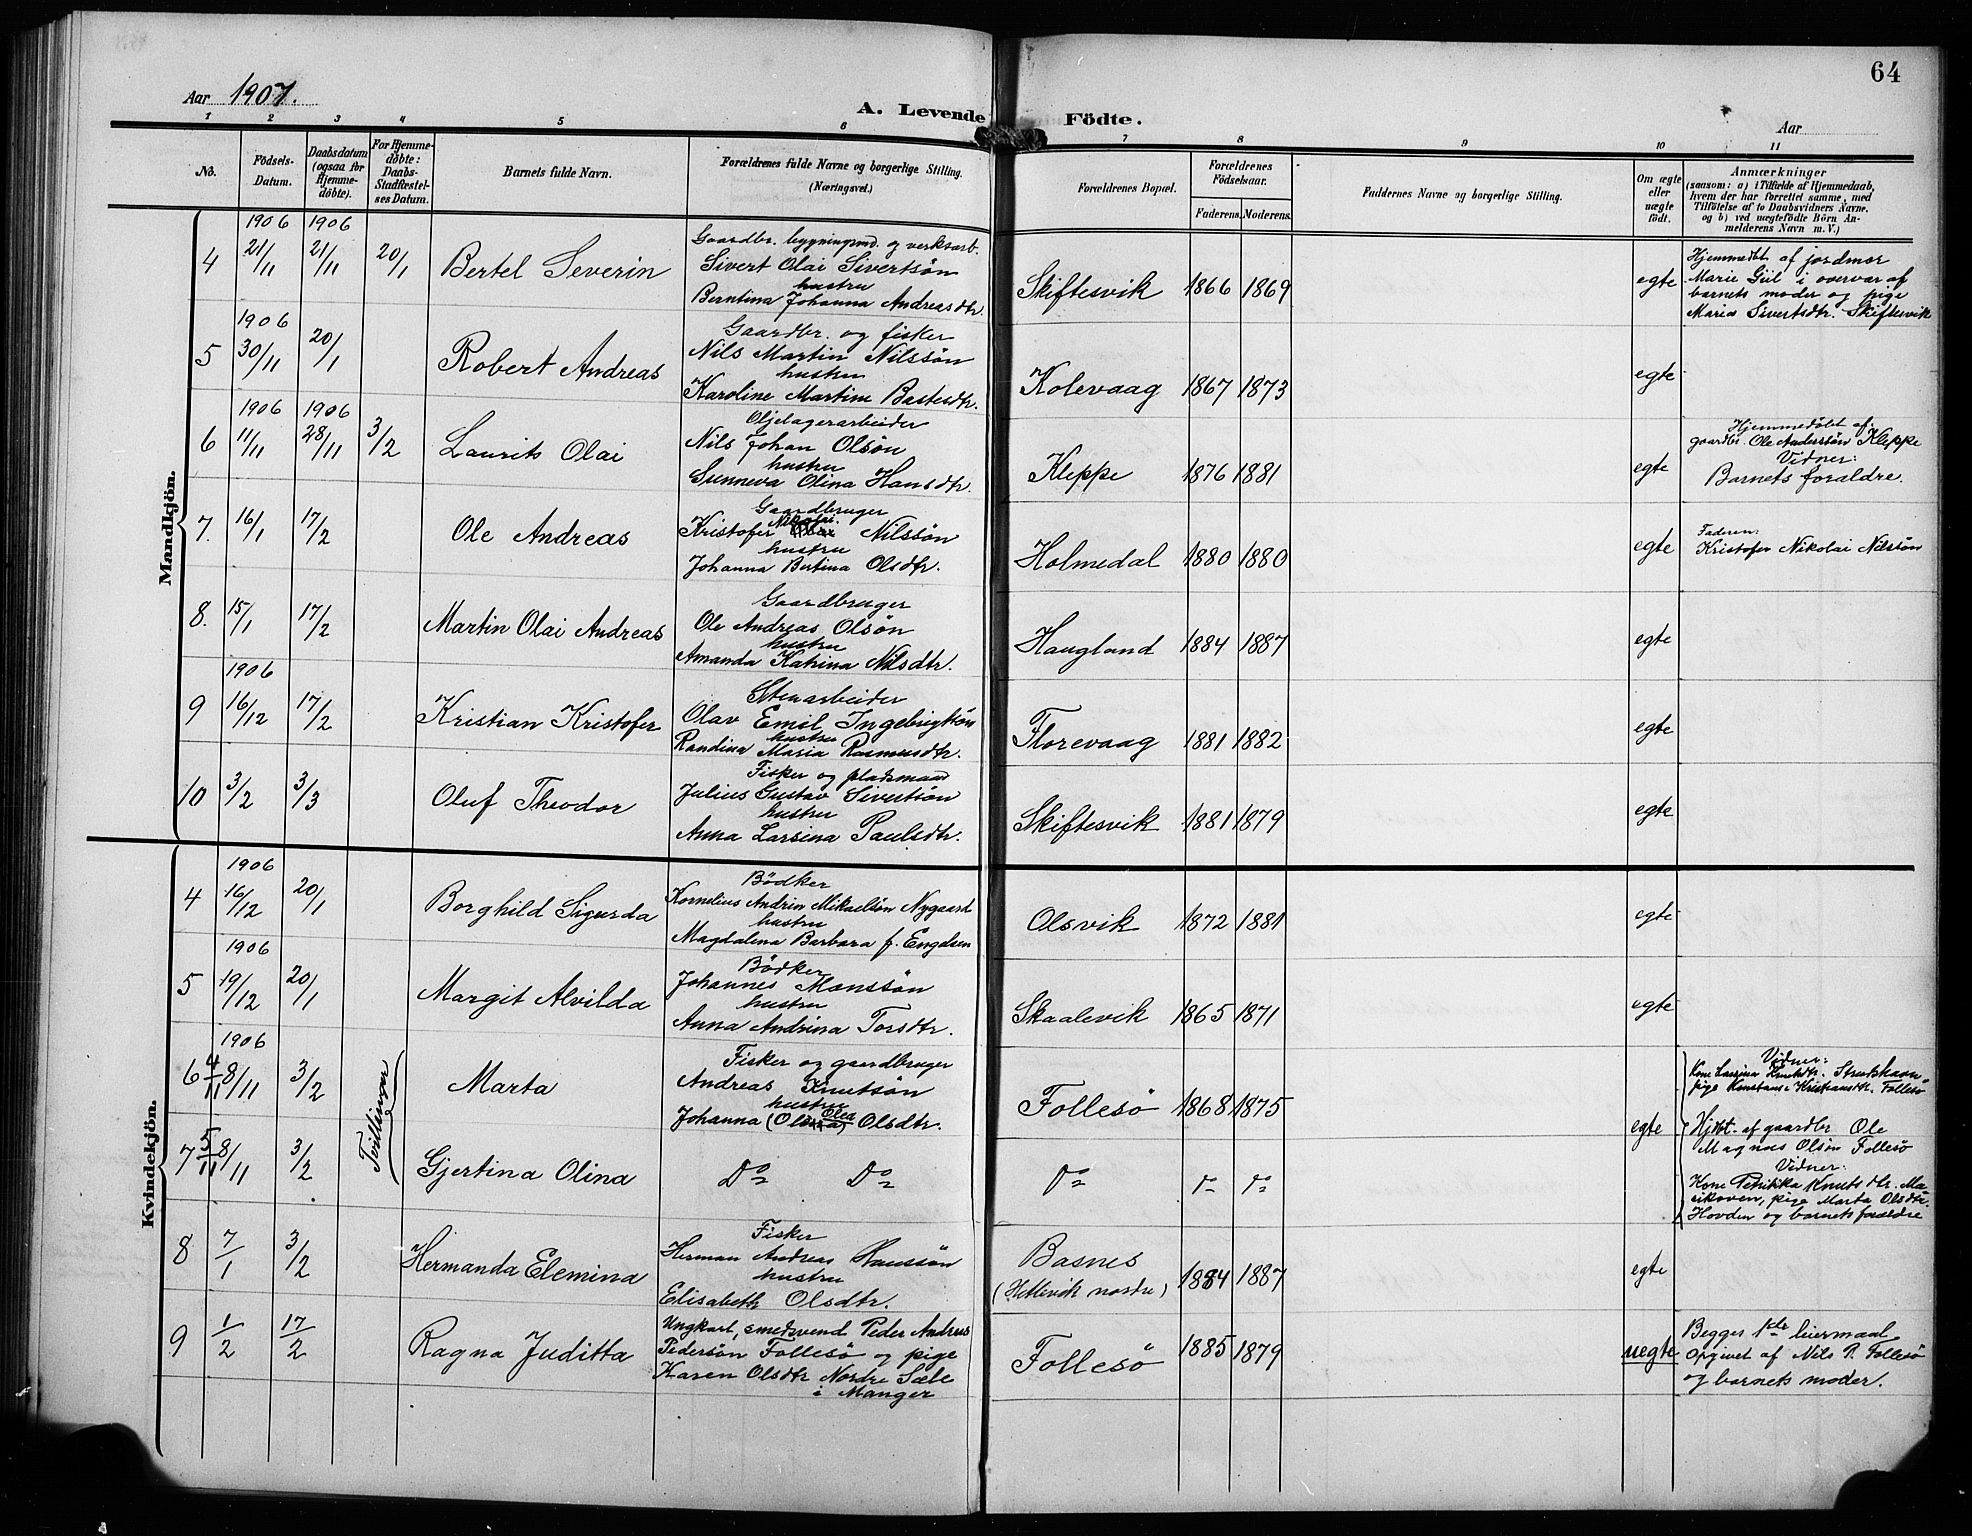 64
Aar 1907.
A. Levende Födte.
Aar
1 2 3 4 5 6 7 8 9 10 11
No.
Födsels-Datum.
Daabsdatum (ogsaa for Hjemme-döbte).
For Hjemme-döbte: Daabs-Stadfæstel-ses Datum.
Barnets fulde Navn.
Forældrenes fulde Navne og borgerlige Stilling. (Næringsvei.)
Forældrenes Bopæl.
Forældrenes Födselsaar.
Faderens. Moderens.
Faddernes Navne og borgerlige Stilling.
Om ægte eller uægte födt.
Anmærkninger
(saasom: a) i Tilfælde af Hjemmedaab,
hvem der har forrettet samme, med
Tilföielse af to Daabsvidners Navne.
og b) ved uægtefödte Börn An-
melderens Navn m. V.)
Mandkjön.
1906 1906
4 21/11 21/11 20/1 Bertel Severin
Gaardbr. bygningsmd. og verksarb.
Sivert Olai Sivertsön
hustru
Berntina Johanna Andreasdtr.
Skiftesvik 1866 1869 egte
Hjemmedbt af jordmor
Marie Giil i overvær af
barnets moder og pige
Maria Sivertsdtr. Skiftesvik
1906
5 30/11 20/1 Robert Andreas
Gaardbr. og fisker
Nils Martin Nilssön
hustru
Karoline Martine Bastesdtr.
Kolevaag 1867 1873 egte
1906 1906
6 11/11 28/11 3/2 Laurits Olai
Oljelagerarbeider
Nils Johan Olsön
hustru
Sunneva Olina Hansdtr.
Kleppe 1876 1881 egte
Hjemmedöbt af:
gaardbr. Ole Anderssön Kleppe
Vidner:
Barnets foraldre.
7. 16/1 17/2 Ole Andreas
Gaardbruger
Nikolai
Kristofer Nilssön
hustru
Johanna Bertina Olsdtr.
Holmedal 1880 1880 egte
Faderen:
Kristofer Nikolai Nilssön
8. 15/1 17/2 Martin Olai Andreas
Gaardbruger
Ole Andreas Olsön
hustru
Amanda Katrina Nilsdtr.
Haugland 1884 1887 egte
1906
9 16/12 17/2 Kristian Kristofer
Stenarbeider
Olav Emil Ingebrigtsön
hustru
Randina Maria Rasmusdtr.
Florevaag 1881 1882 egte
10 3/2 3/3 Oluf Theodor
Fisker og pladsmand
Julius Gustav Sivertsön
hustru
Anna Larsina Paulsdtr.
Skiftesvik 1881 1879 egte
Kvindekjön.
1906
4 16/12 20/1 Borghild Sigurda
Bödker
Kornelius Andrin Mikaelsön Nygaard
hustru
Magdalena Barbara f. Engelsen
Olsvik 1872 1881 egte
1906
5 19/12 20/1 Margit Alvilda
Bödker
Johannes Monssön
hustru
Anna Andrina Torsdtr.
Skaalevik 1865 1871 egte
1906
6 8/11 3/2 Marta
Tvillinger
Fisker og gaardbruger
Andreas Knutsön
hustru
Johanna Olea Olsdtr.
Follesö 1868 1875 egte
Vidner:
Kone Larsina Knutsdtr.
pige Konstanse Kristiansdtr. Follesö
7 8/11 3/2 Gjertina Olina
Do Do
Do do do
Hjdbt. af gaardbr Ole
Magnus Olsön Follesö
Vidner:
Kone Knutsdtr.
pige Marta Olsdtr.
Hovden og barnets forældre
8 7/1 3/2 Hermanda Elemina
Fisker
Herman Andreas Hanssön
hustru
Elisabeth Olsdtr.
Basnes
(Hetlevik nordre) 1884 1887 egte
9 1/2 17/2 Ragna Juditta
Ungkarl, smedsvend Peder Andreas
Pedersön Follesö og pige
Karen Olsdtr Nordre Sæle
i Manger
Follesö 1885 1879 uegte
Begges 1ste leiermaal
Opgivet af Nils P. Follesö
og barnets moder.